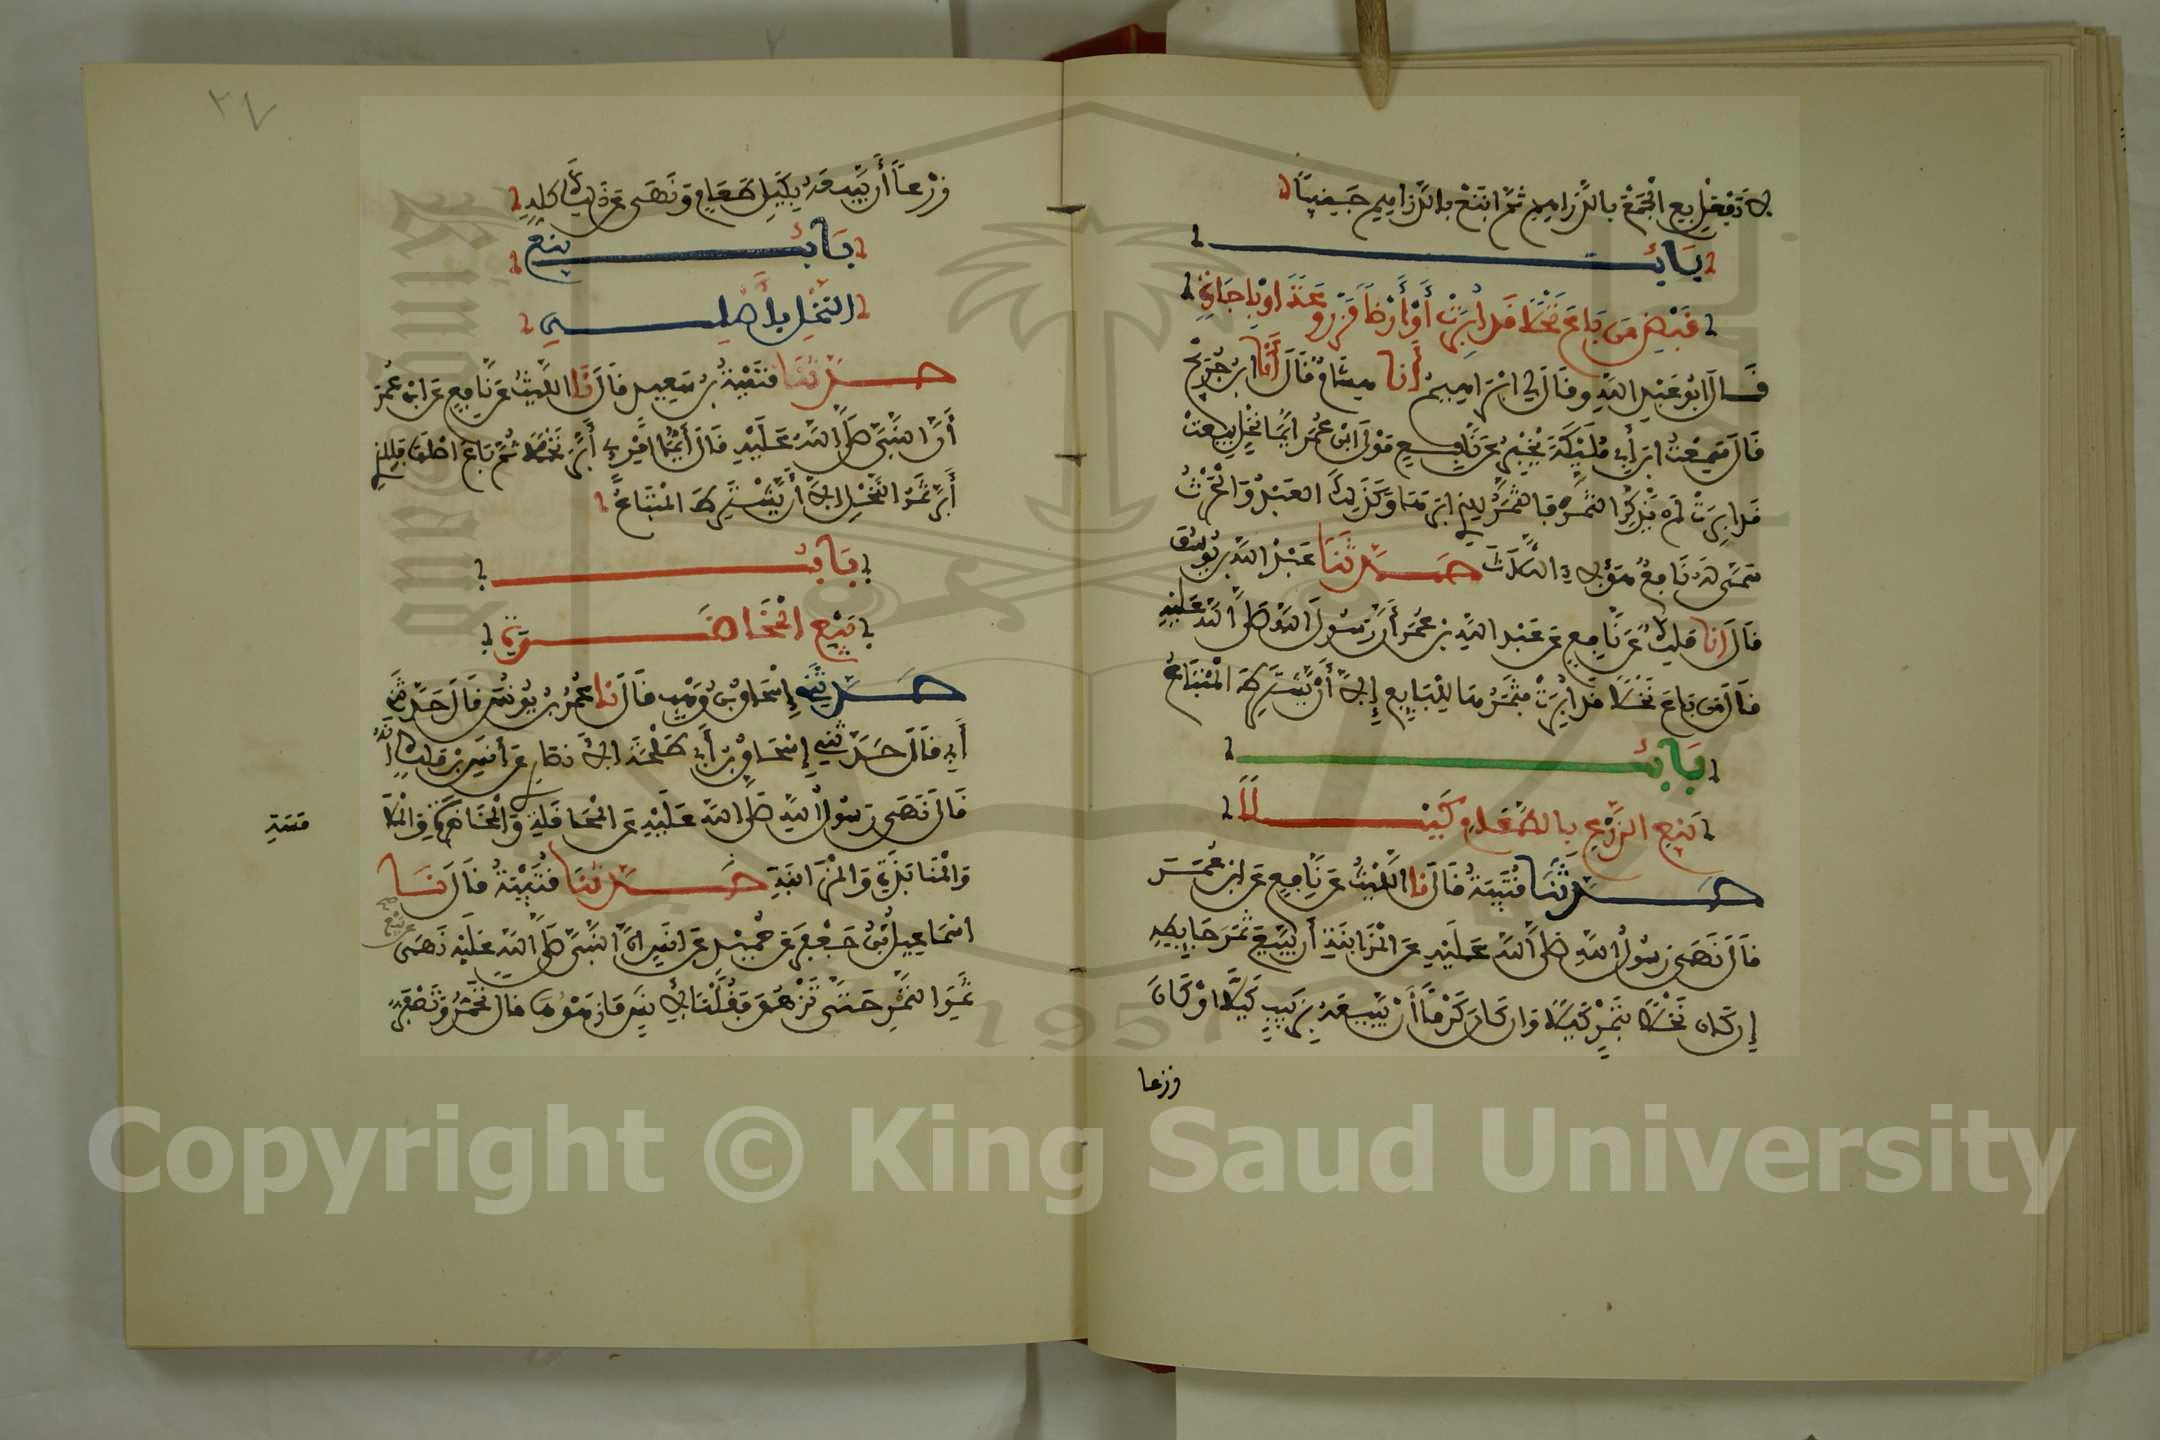 لا تفعل بع الجمع بالدراهم ثم ابتع بالدراهم جنيبا
باب
قبض من باع نخلا قد ابرت أو أرضا مزروعة او بإجارة
قال ابو عبد الله وقال لي ابراهيم أنا هشام قال أنا ابن جريج
قال سمعت ابن أبي مليكة يخبر عن نافع مولى ابن عمر ايما نخل بيعت
قد ابرت لم يذكر الثمر فالثمر للذي ابرها وكذلك العبد والحرث
سمى له نافع هؤلاء الثلاث حدثنا عبد الله بن يوسف
قال انا ملك عن نافع عن عبد الله بن عمر أن رسول الله صلى الله عليه
قال من باع نخلا قد أبرت فثمرها للبايع إلا أن يشترط المبتاع
باب
بيع الزرع بالطعام كيلا
حدثنا قتيبة قال نا الليث عن نافع عن ابن عمر
قال نهى رسول الله صلى الله عليه عن المزابنة أن يبيع ثمر حايطه
إن كان نخلا بتمر كيلا وان كان كرما أن يبيعه بزبيب كيلا او كان
وزرعا
٢٧
زرعا أن يبيعه بكيل طعام ونهى عن ذلك كله
باب بيع
النخل بأصله
حدثنا قتيبة بن سعيد قال نا الليث عن نافع عن ابن عمر
أن النبي صلى الله عليه قال أيما امرئ أبر نخلا ثم باع اصلها فللذي
أبر ثمر النخل الا أن يشترط المبتاع
باب
بيع المخاضرة
حدثني إسحاق بن وهب قال نا عمر بن يونس قال حدثني
أبي قال حدثني إسحاق بن أبي طلحة الانصاري عن أنس بن ملك أنه
قال نهى رسول الله صلى الله عليه عن المحاقلة والمخاضرة والملا
مسة
والمنابذة والمزابنة حدثنا قتيبة قال نا
اسماعيل بن جعفر عن حميد عن انس ان النبي صلى الله عليه نهى
عن بيع
ثمر التمر حتى تزهو فقلنا لأنس ما زهوها قال تحمر وتصفر
Copyright © King Saud University
1957